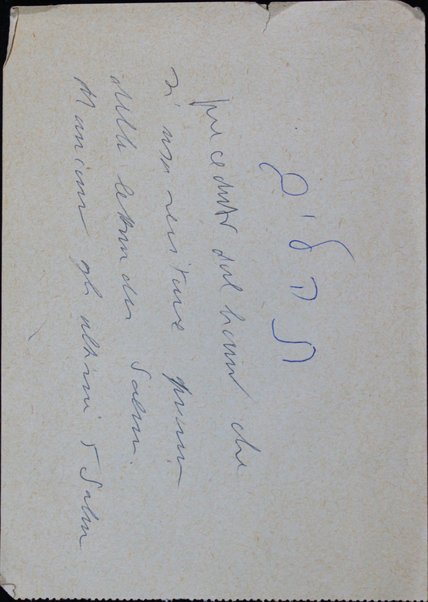 תהלים
preceduto dal brano che
si usa recitare prima
della lettura dei Salmi.
Mancano gli ultimi 5 Salmi